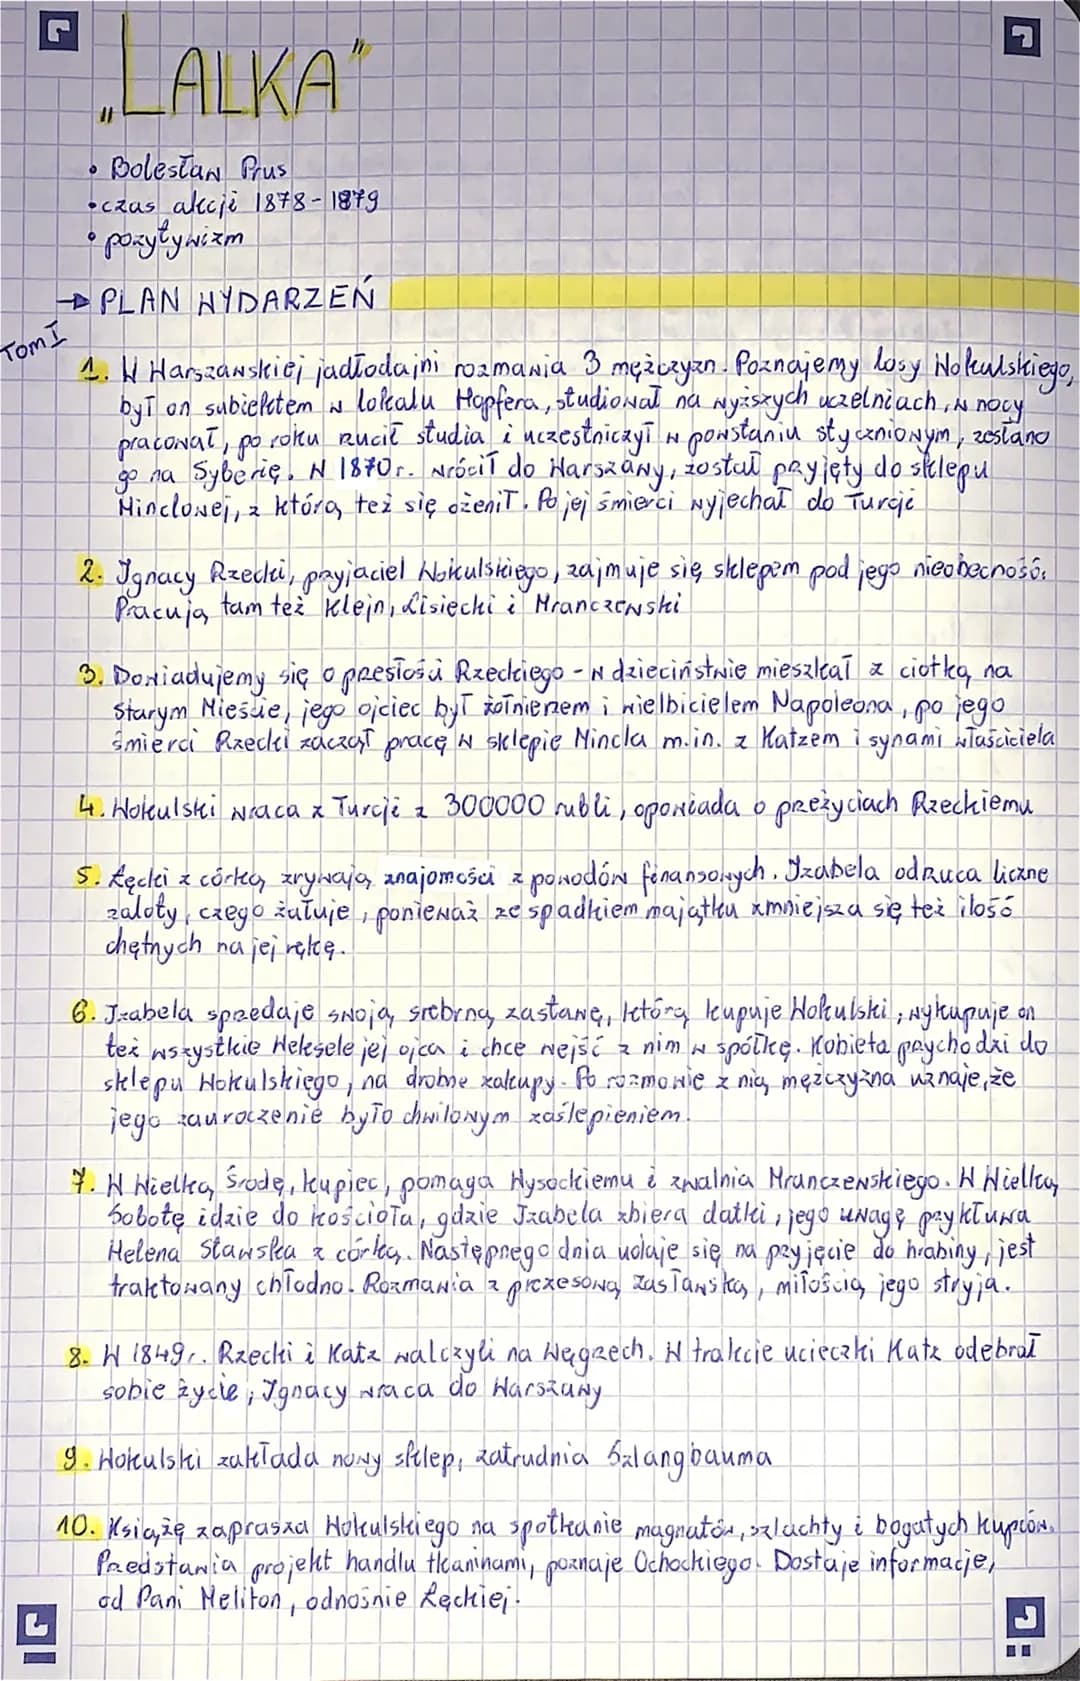 „LALKA"
• Bolesław Prus
• czas akcji 1878-1879
• pozytywizm
→ PLAN WYDARZEŃ
Tom I
1. W Warszawskiej jadłodajni rozmawia 3 mężczyzn. Poznajemy losy Wokulskiego,
był on subiektem w lokalu Hopfera, studiował na wyższych uczelniach, w nocy
pracował, po roku rzucił studia i uczestniczył w powstaniu styczniowym, zesłano
go na Syberię. W 1870r. wrócił do Warszawy, został przyjęty do sklepu
Minclowej, z którą też się ożenił. Po jej śmierci wyjechał do Turcji
2. Ignacy Rzecki, przyjaciel Wokulskiego, zajmuje się sklepem pod jego nieobecność.
Pracują tam też Klejn, Lisiecki i Mranczewski
3. Dowiadujemy się o przesłości Rzeckiego - w dzieciństwie mieszkał z ciotką na
Starym Mieście, jego ojciec był żołnierzem i wielbicielem Napoleona, po jego
śmierci Rzecki zaczął pracę w sklepie Mincla m.in. z Katzem i synami właściciela
4. Wokulski wraca z Turcji z 300000 rubli, opowiada o przeżyciach Rzeckiemu
5. Łęcki z córką zrywają znajomości z powodów finansowych. Izabela odrzuca liczne
zaloty, czego żałuje, ponieważ ze spadkiem majątku zmniejsza się też ilość
chętnych na jej rękę.
6. Izabela sprzedaje swoją srebrną zastawę, którą kupuje Wokulski, wykupuje on
też wszystkie weksele jej ojca i chce wejść z nim w spółkę. Kobieta przychodzi do
sklepu Wokulskiego, na drobne zakupy. Po rozmowie z nią mężczyzna uznaje, że
jego zauroczenie było chwilowym zaślepieniem.
7. W Wielką Środę, kupiec, pomaga Wysockiemu i zwalnia Mranczewskiego. W Wielką
Sobotę idzie do kościoła, gdzie Izabela zbiera datki, jego uwagę przykłuwa
Helena Stawska z córką. Następnego dnia udaje się na przyjęcie do hrabiny, jest
traktowany chłodno. Rozmawia z prezesową Zasławską, miłością jego stryja.
8. W 1849r. Rzecki i Katz walczyli na Węgrzech. W trakcie ucieczki Katz odebrał
sobie życie, Ignacy wraca do Warszawy
9. Wokulski zakłada nowy sklep, zatrudnia Szlangbauma
10. Książę zaprasza Wokulskiego na spotkanie magnatów, szlachty i bogatych kupców.
Przedstawia projekt handlu tkaninami, poznaje Ochockiego. Dostaje informacje,
od Pani Meliton, odnośnie Łęckiej.